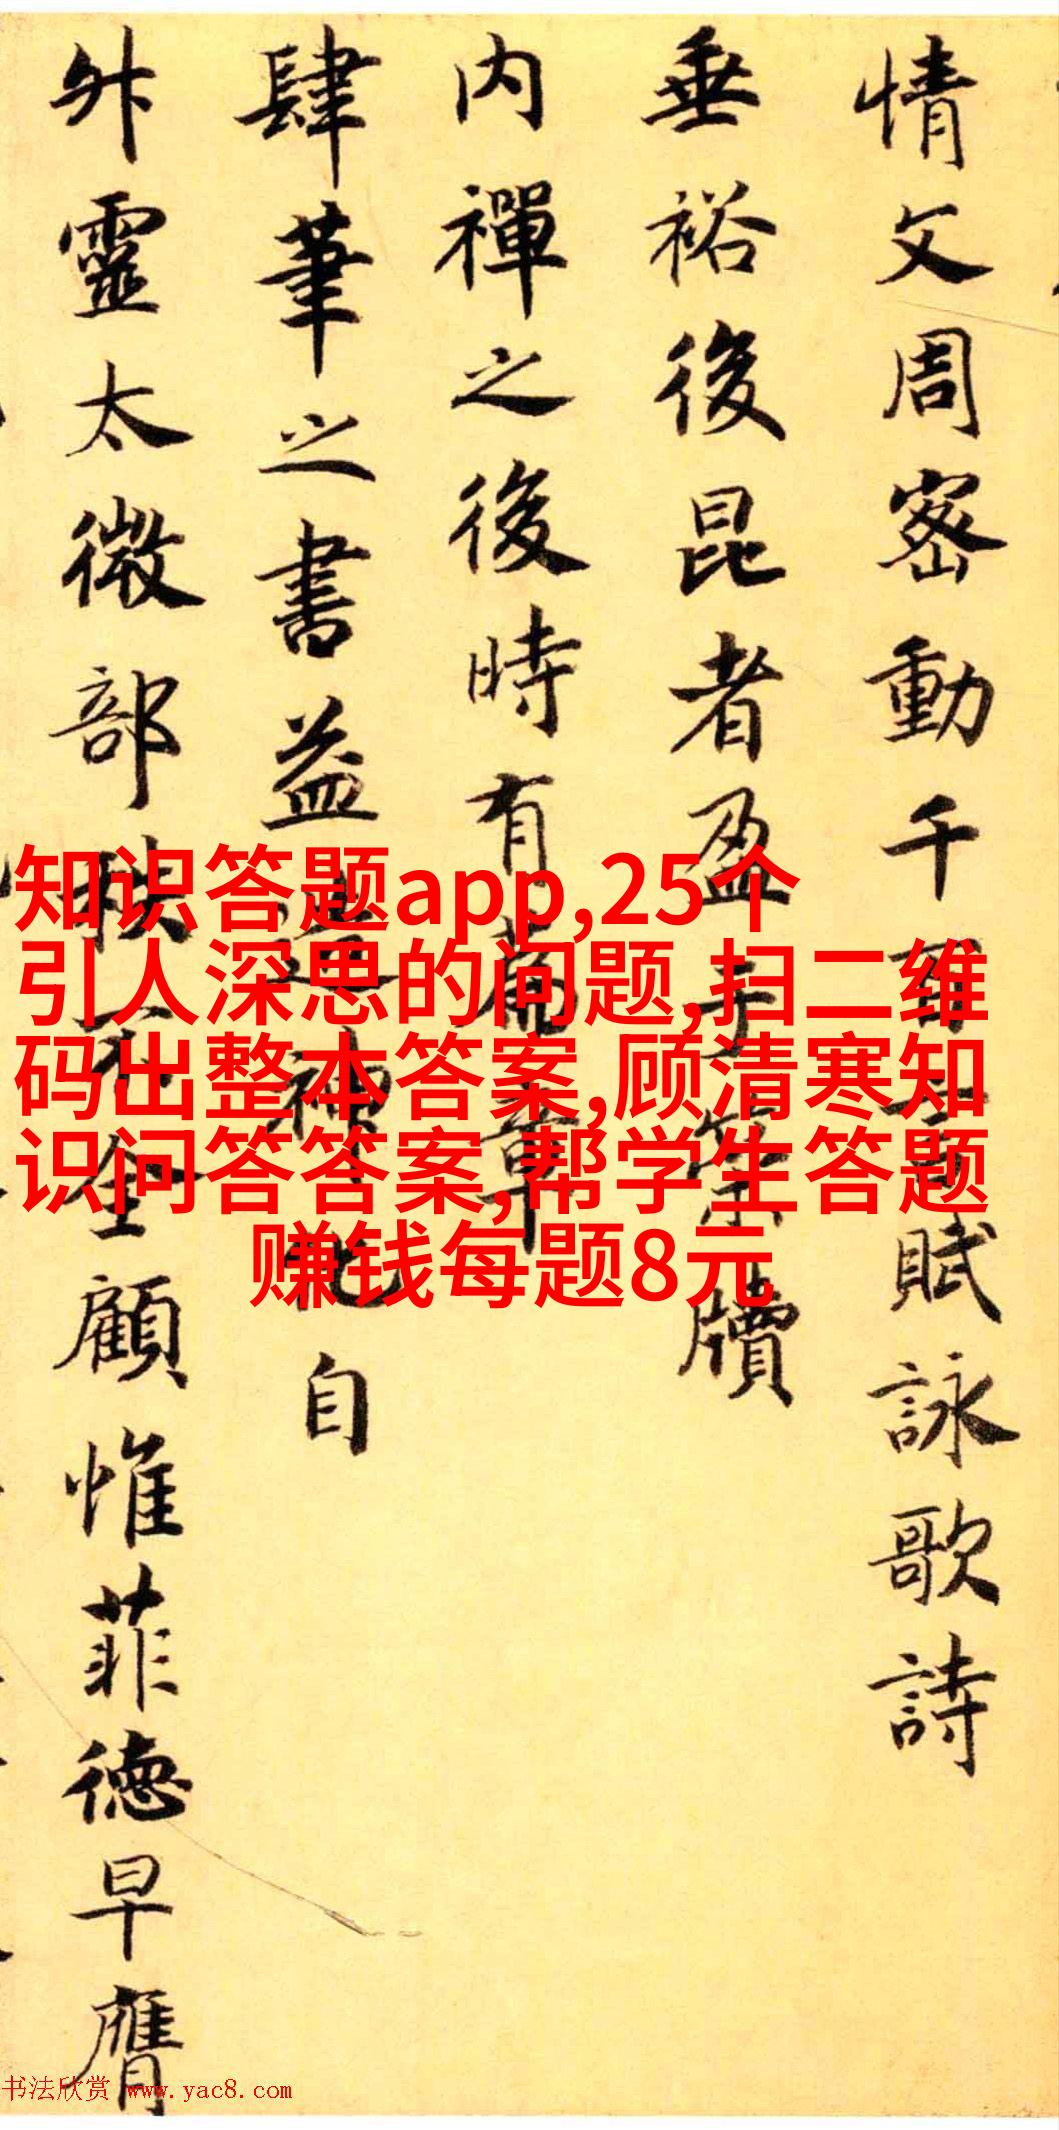 情文周密動千
賦詠歌詩
垂裕後昆者盈
牘
内禪之後時有
肆筆之書益
自
外靈太微部
顧惟菲德早膺
知识答题app,25个
引人深思的问题,扫二维
码出整本答案,顾清寒知
识问答答案,帮学生答题
赚钱每题8元
书法欣赏 www.yac8.com